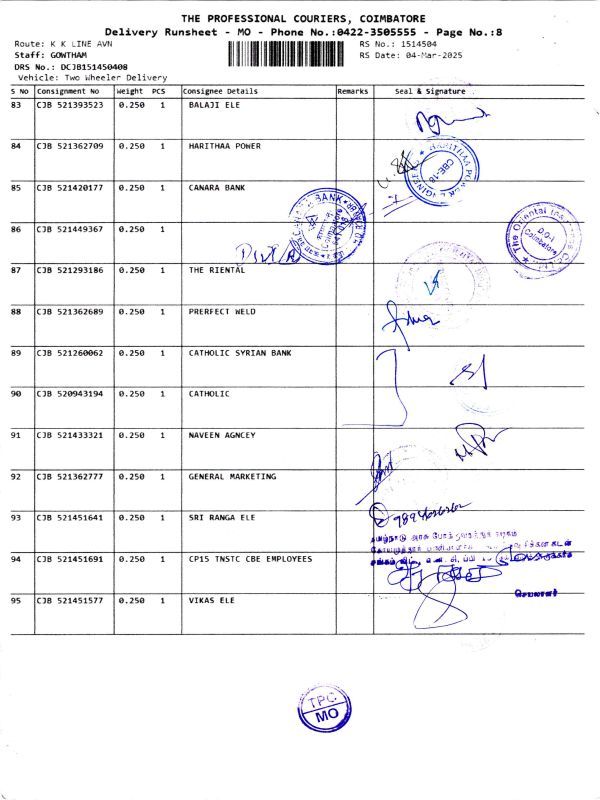 THE PROFESSIONAL COURIERS, COIMBATORE
Delivery Runsheet - MO - Phone No.:0422-3505555 - Page No.:8
Route: K K LINE AVN
RS No.: 1514504
Staff: GOWTHAM
RS Date: 04-Mar-2025
DRS No.: DCJB151450408
Vehicle: Two Wheeler Delivery
S No Consignment No Weight PCS Consignee Details Remarks Seal & Signature
83 CJB 521393523 0.250 1 BALAJI ELE
84 CJB 521362709 0.250 1 HARITHAA POWER
HARITHAA POWER ENGINEER
CBE-18
85 CJB 521420177 0.250 1 CANARA BANK
CANARA BANK
86 CJB 521449367 0.250 1
The Oriental
D.O-1
Coimbatore
87 CJB 521293186 0.250 1 THE RIENTAL
88 CJB 521362689 0.250 1 PRERFECT WELD
89 CJB 521260062 0.250 1 CATHOLIC SYRIAN BANK
90 CJB 520943194 0.250 1 CATHOLIC
91 CJB 521433321 0.250 1 NAVEEN AGNCEY
92 CJB 521362777 0.250 1 GENERAL MARKETING
93 CJB 521451641 0.250 1 SRI RANGA ELE
தமிழ்நாடு அரசு
94 CJB 521451691 0.250 1 CP15 TNSTC CBE EMPLOYEES
செயலாளர்
95 CJB 521451577 0.250 1 VIKAS ELE
TPC
MO